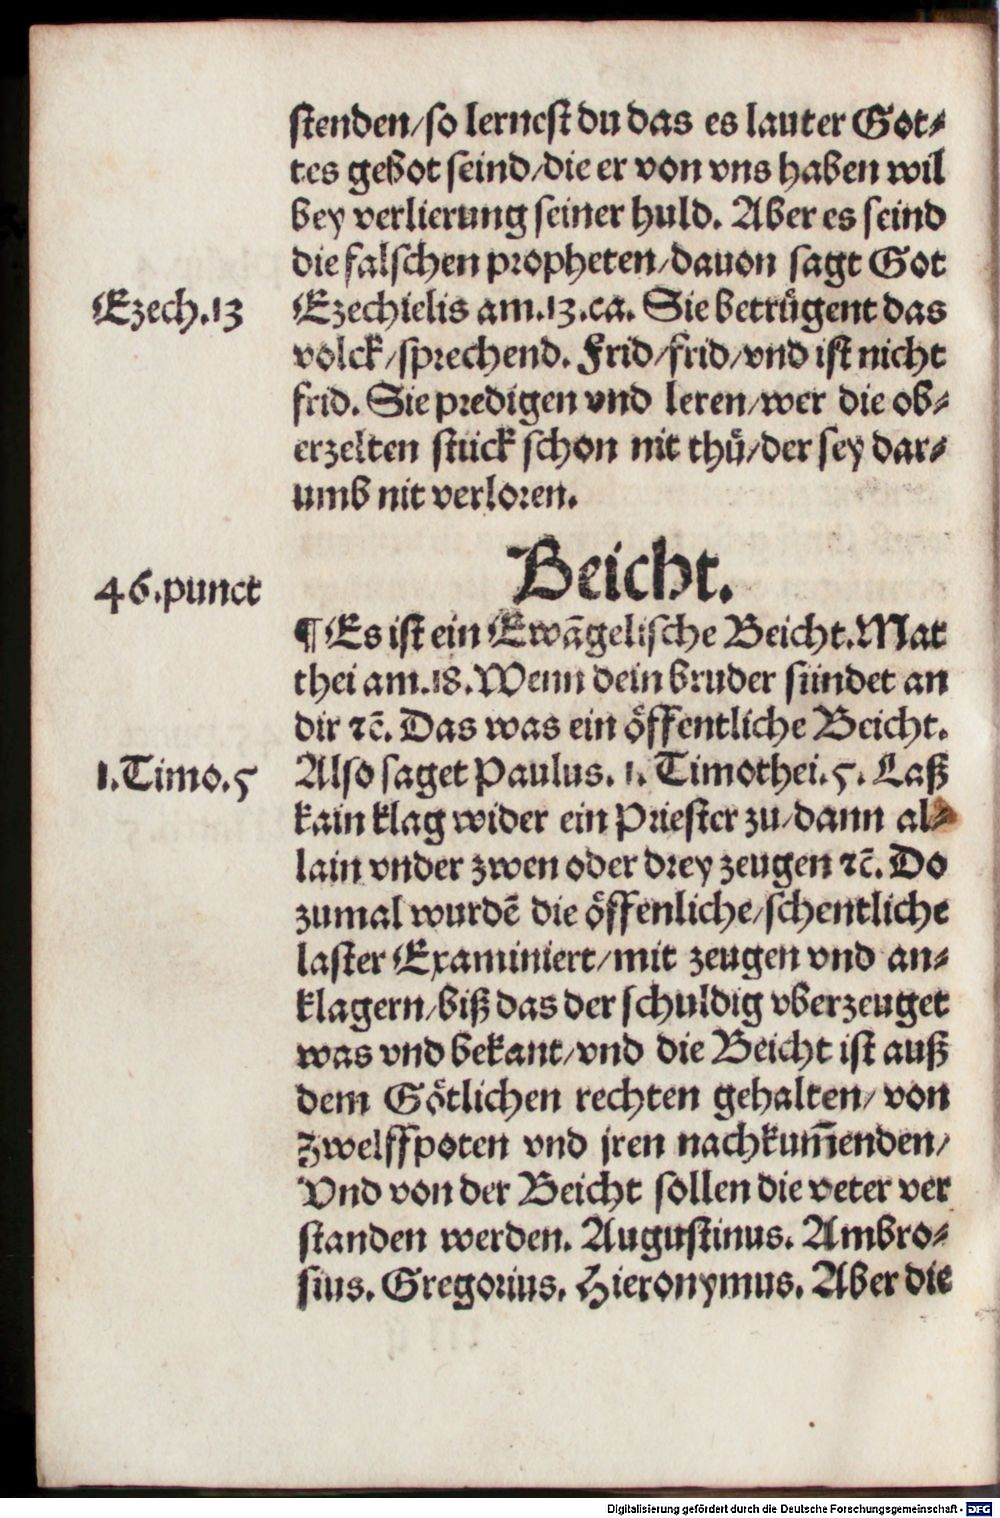 stenden/so lernest du das es lauter Got⸗
tes gebot seind/die er von vns haben wil
bey verlierung seiner huld. Aber es seind
die falschen propheten/dauon sagt Got
Ezech.13
Ezechielis am.13.ca. Sie betrügent das
volck/sprechend. Frid/frid/vnd ist nicht
frid. Sie predigen vnd leren/wer die ob⸗
erzelten stück schon nit thů/der sey dar⸗
umb nit verloren.
Beicht.
46.punct
¶ Es ist ein Ewãgelische Beicht. Mat
thei am.18. Wenn dein bruder sündet an
dir ⁊c̃. Das was ein öffentliche Beicht.
1.Timo.5
Also saget Paulus. 1. Timothei.5. Laß
kain klag wider ein Priester zu/dann al⸗
lain vnder zwen oder drey zeugen ⁊c̃. Do
zumal wurdẽ die öffenliche/schentliche
laster Examiniert/mit zeugen vnd an⸗
klagern/biß das der schuldig vberzeuget
was vnd bekant/vnd die Beicht ist auß
dem Götlichen rechten gehalten/von
Zwelffpoten vnd jren nachkum̃enden/
Vnd von der Beicht sollen die veter ver
standen werden. Augustinus. Ambro⸗
sius. Gregorius. Hieronymus. Aber die
Digitalisierung gefördert durch die Deutsche Forschungsgemeinschaft - DFG